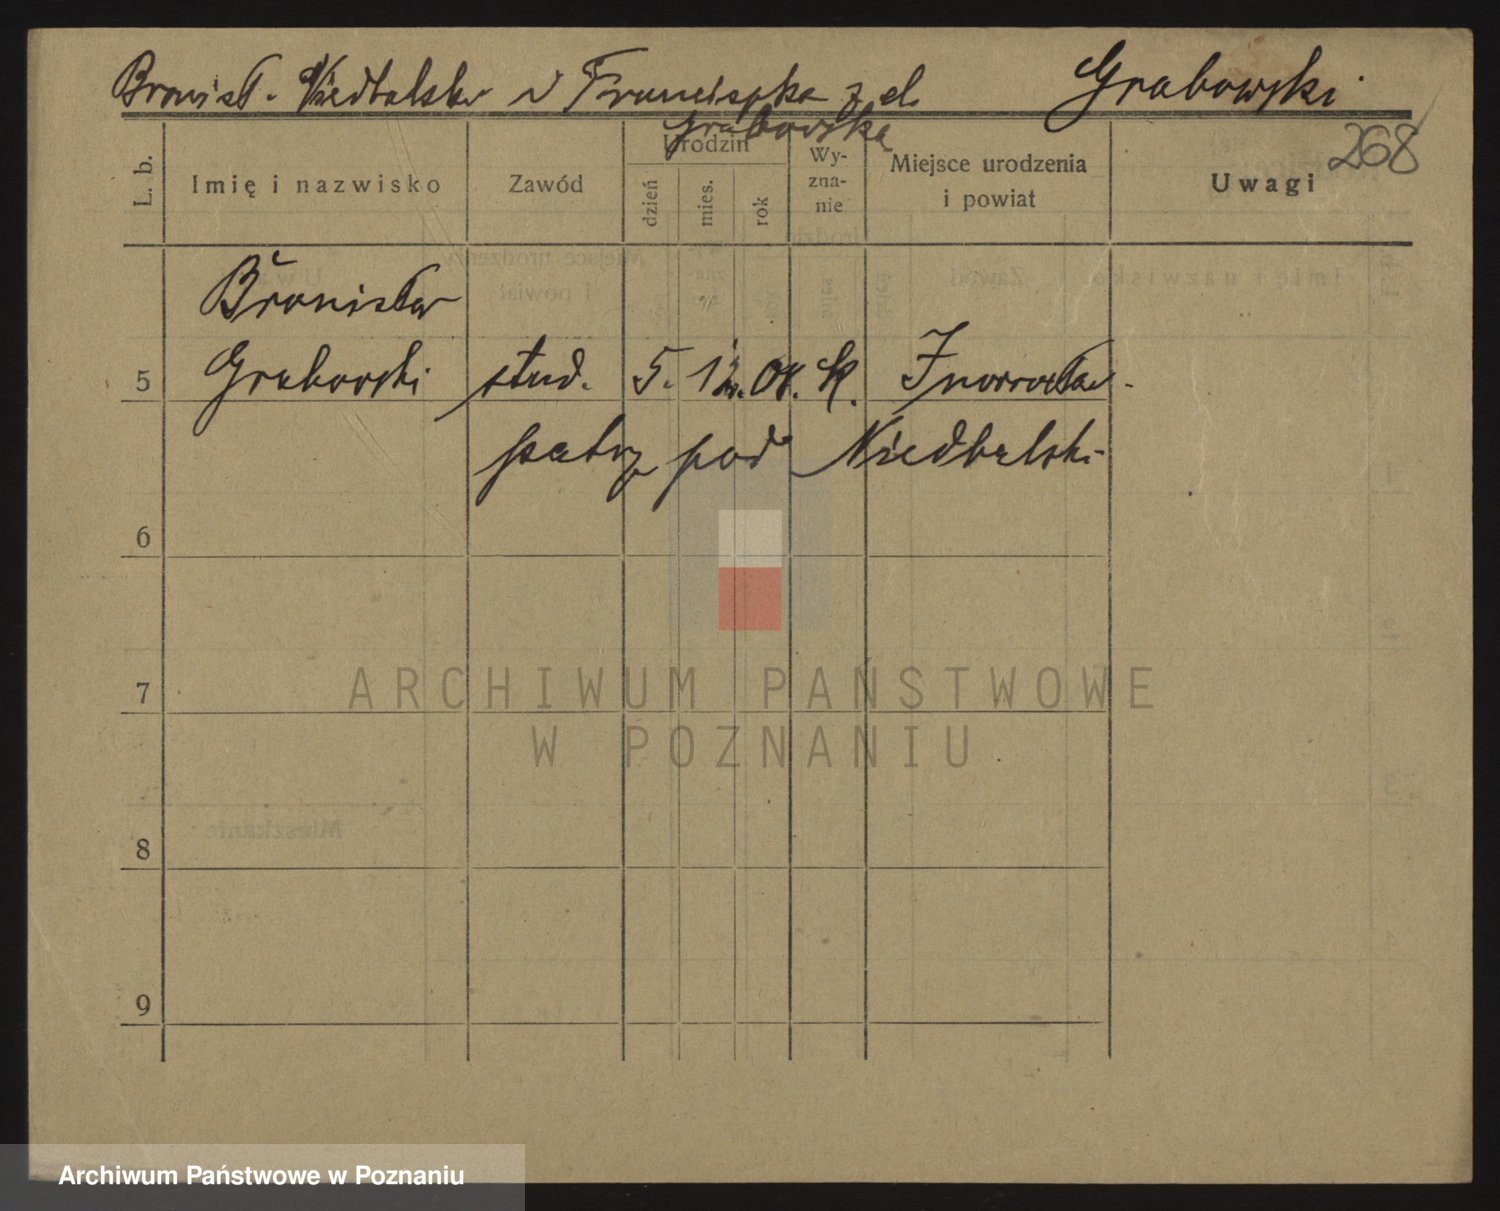 Bronisł. Niedbalska v Franciszka z d. Grabowski
Grabowska
268
L. b.
Imię i nazwisko
Zawód
Urodzin
dzień
mies.
rok
Wy-
zna-
nie
Miejsce urodzenia
i powiat
Uwagi
Bronisław
5 Grabowski stud. 5. 12. 08. K. Inowrocław.
patrz pod Niedbalski
6
7
8
9
ARCHIWUM PAŃSTWOWE
W POZNANIU
Mieszkanie
Archiwum Państwowe w Poznaniu